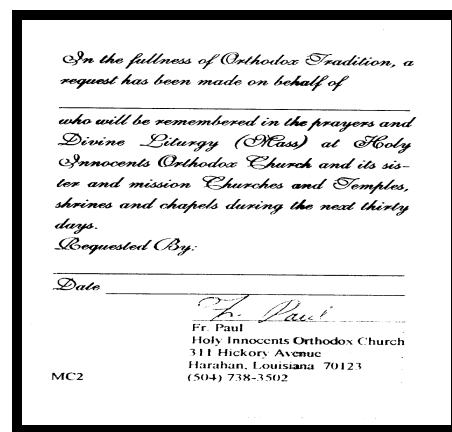 In the fullness of Orthodox Tradition, a
request has been made on behalf of
who will be remembered in the prayers and
Divine Liturgy (Mass) at Holy
Innocents Orthodox Church and its sis-
ter and mission Churches and Temples,
shrines and chapels during the next thirty
days.
Requested By:
Date
Fr. Paul
Fr. Paul
Holy Innocents Orthodox Church
311 Hickory Avenue
Harahan, Louisiana 70123
MC2 (504) 738-3502